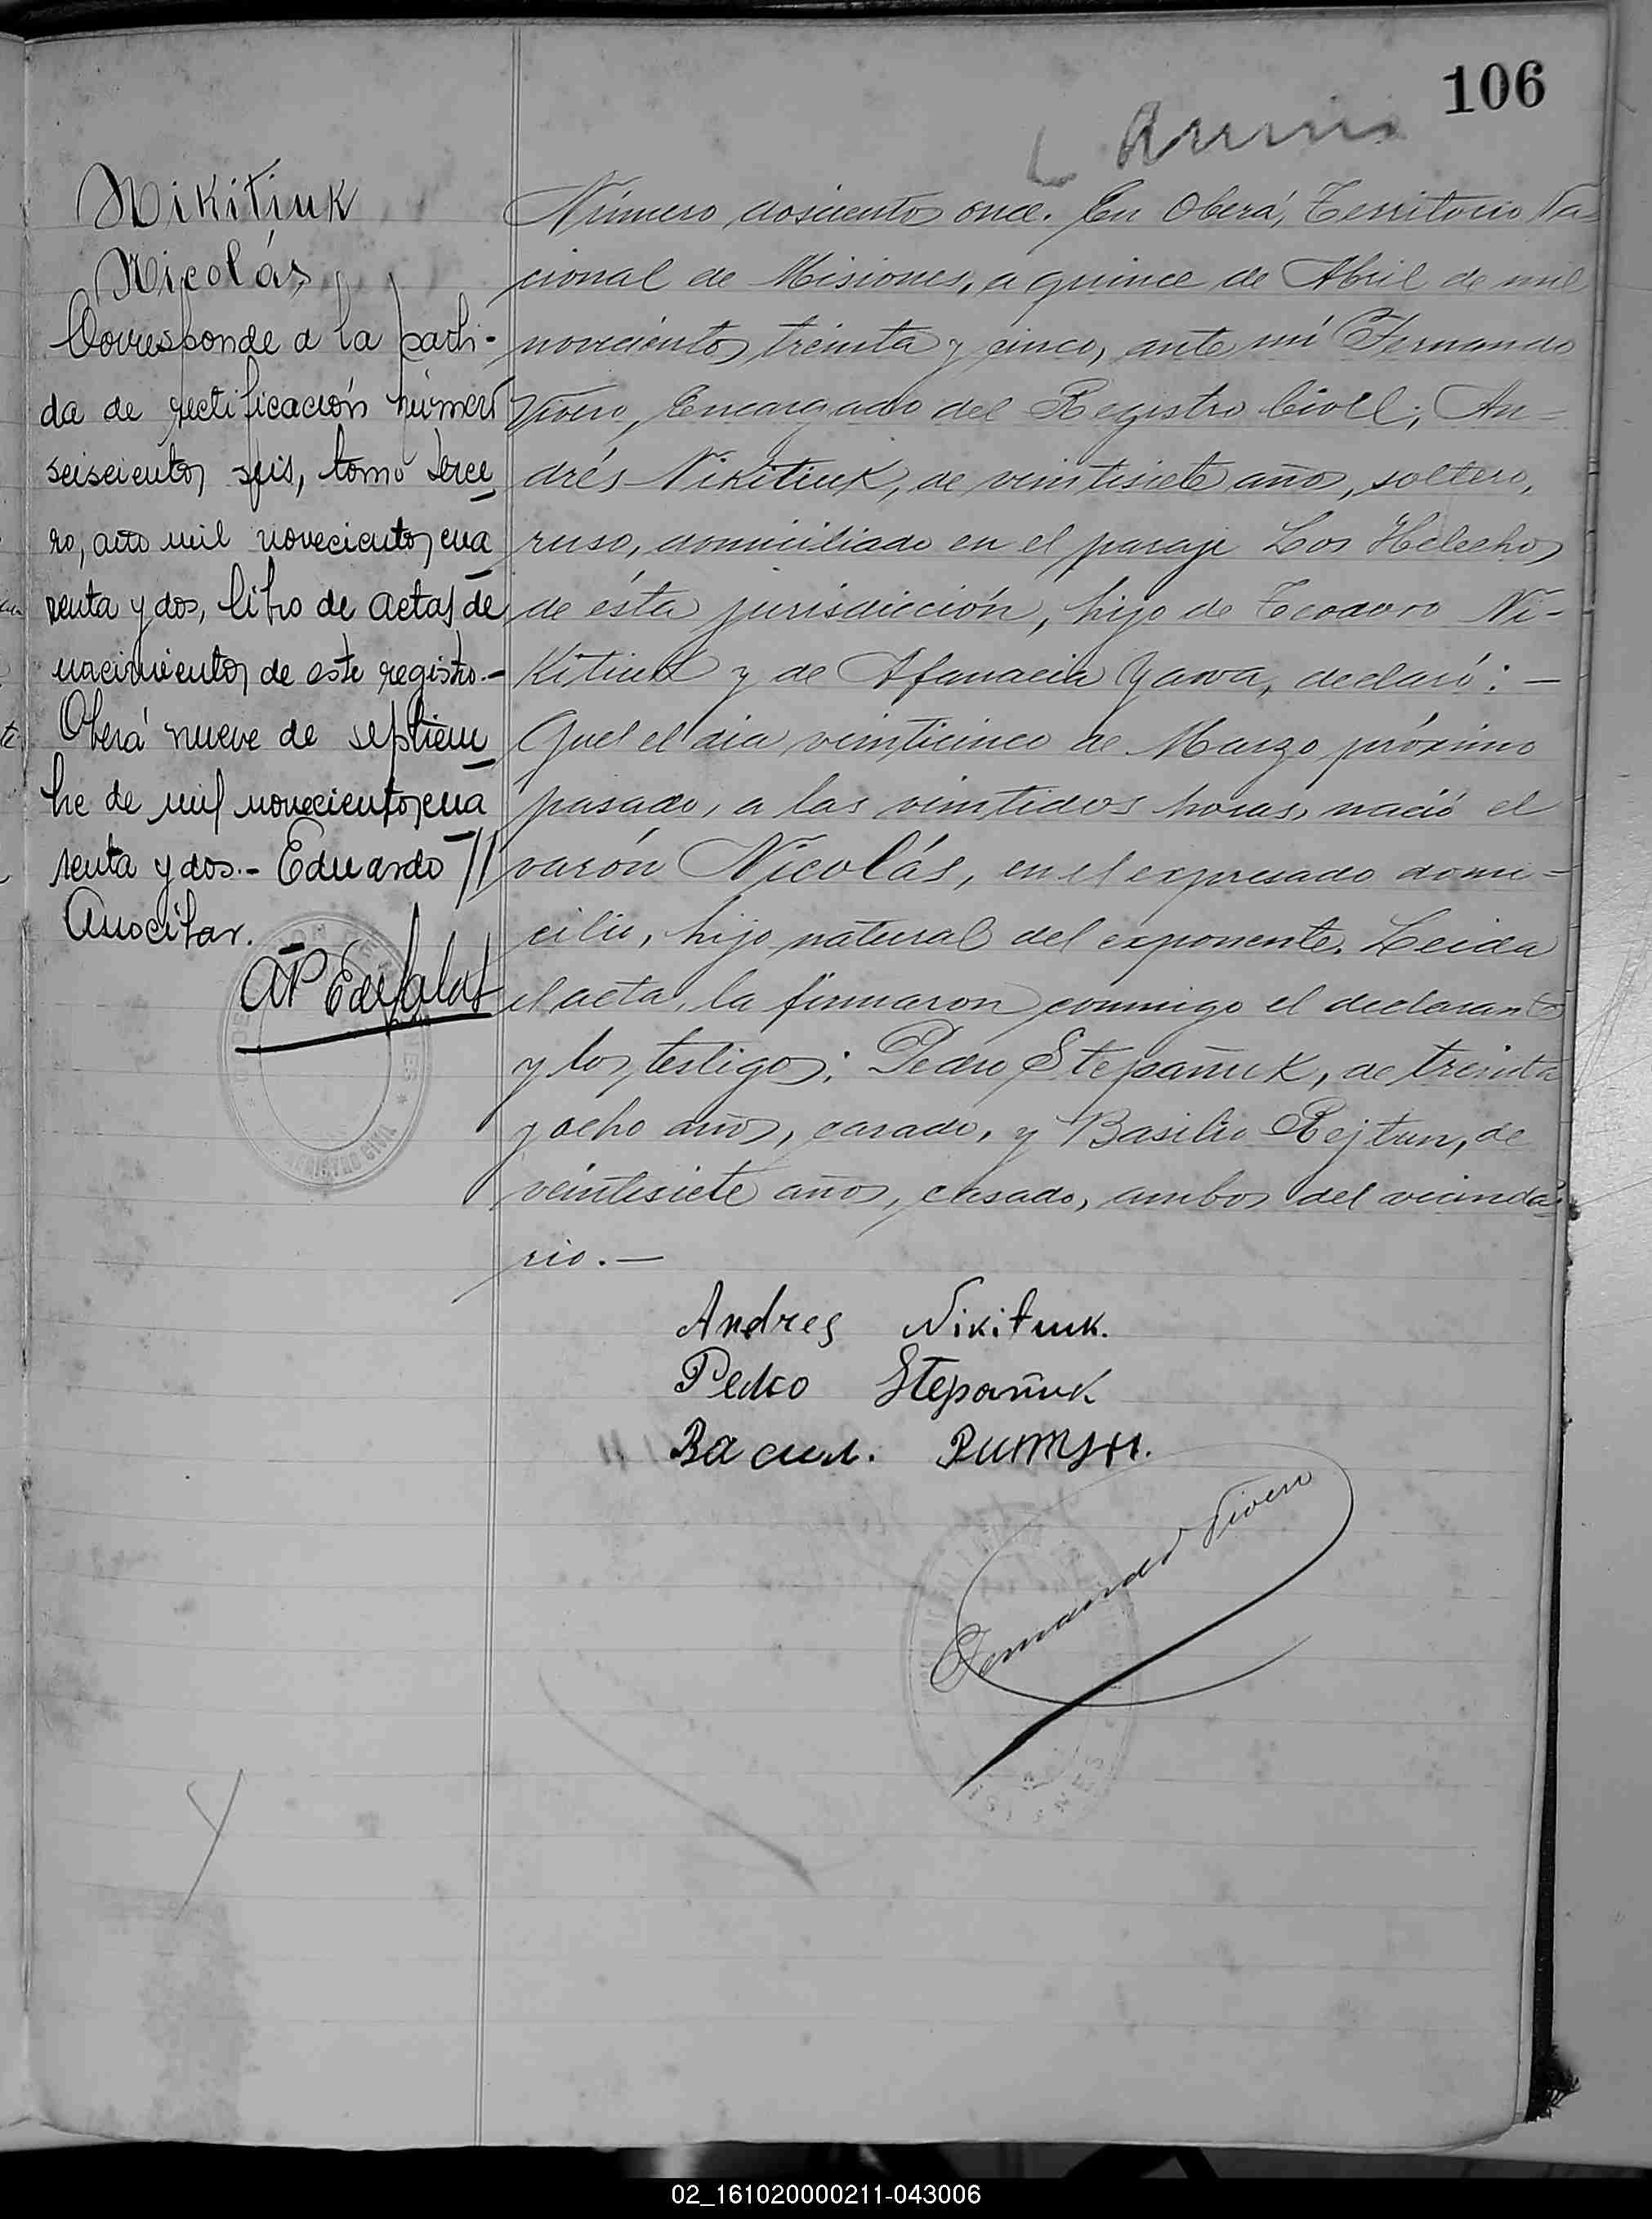 106
Nikitiuk
Nicolás
Corresponde a la parti-
da de rectificación número
seiscientos seis, tomo terce
ro, año mil novecientos cua
renta y dos, libro de actas de
nacimientos de este registro.-
Oberá nueve de septiem
bre de mil novecientos cua
renta y dos.- Eduardo
Número dosciento once. En Oberá, Territorio Na-
cional de Misiones, a quince de Abril de mil
novecientos treinta y cinco, ante mí Fernando
Vivero, Encargado del Registro Civil; An-
drés Nikitiuk, de veintisiete años, soltero,
ruso, domiciliado en el paraje Los Helechos
de ésta jurisdicción, hijo de Teodoro Ni-
kitiuk y de Afanacia Yawa, declaró: —
Quel el día veinticinco de Marzo próximo
pasado, a las veintidos horas, nació el
varón Nicolás, en el expresado domi-
cilio, hijo natural del exponente. Leida
el acta, la firmaron conmigo el declarante
y los testigos: Pedro Stepañuk, de treinta
y ocho años, casado, y Basilio Rejtun, de
veintisiete años, casado, ambos del vecinda-
rio.—
Andres Nikitiuk.
Pedro Stepañuk
Васил.
Fernando Vivero
REGISTRO CIVIL
02_161020000211-043006